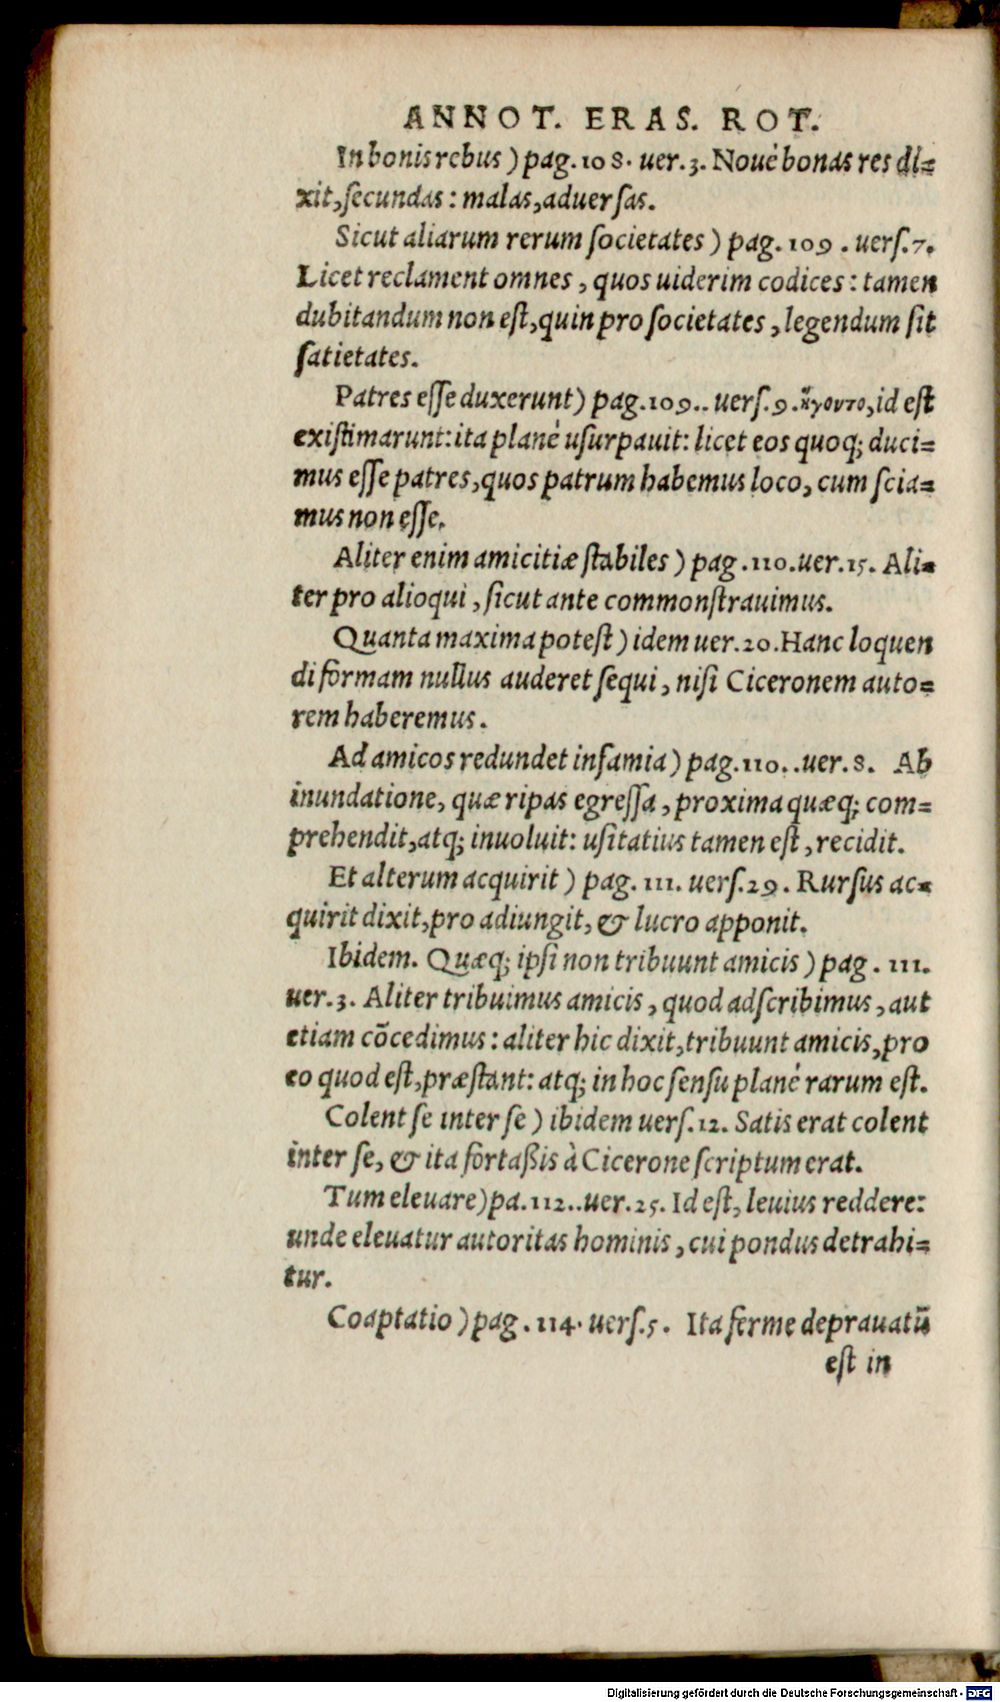 ANNOT. ERAS. ROT.
In bonis rebus ) pag. 108. uer. 3. Nouè bonas res di=
xit, secundas : malas, aduersas.
Sicut aliarum rerum societates ) pag. 109 . uers. 7.
Licet reclament omnes , quos uiderim codices : tamen
dubitandum non est, quin pro societates , legendum sit
satietates.
Patres esse duxerunt) pag. 109.. uers. 9. ἥγουντο, id est
existimarunt: ita planè usurpauit: licet eos quoq; duci=
mus esse patres, quos patrum habemus loco, cum scia=
mus non esse.
Aliter enim amicitiæ stabiles ) pag . 110. uer. 15. Ali=
ter pro alioqui , sicut ante commonstrauimus.
Quanta maxima potest ) idem uer. 20. Hanc loquen
di formam nullus auderet sequi , nisi Ciceronem auto=
rem haberemus .
Ad amicos redundet infamia ) pag. 110. . uer. 8. Ab
inundatione, quæ ripas egressa , proxima quæq; com=
prehendit, atq; inuoluit: usitatius tamen est , recidit.
Et alterum acquirit ) pag. 111. uers. 29 . Rursus ac=
quirit dixit, pro adiungit, & lucro apponit.
Ibidem. Quæq; ipsi non tribuunt amicis ) pag . 111.
uer. 3. Aliter tribuimus amicis , quod adscribimus , aut
etiam cõcedimus : aliter hic dixit, tribuunt amicis, pro
eo quod est, præstant: atq; in hoc sensu planè rarum est.
Colent se inter se ) ibidem uers. 12. Satis erat colent
inter se, & ita fortaßis à Cicerone scriptum erat.
Tum eleuare) pa. 112.. uer. 25. Id est, leuius reddere:
unde eleuatur autoritas hominis , cui pondus detrahi=
tur.
Coaptatio ) pag . 114. uers. 5 . Ita ferme deprauatũ
est in
Digitalisierung gefördert durch die Deutsche Forschungsgemeinschaft - DFG